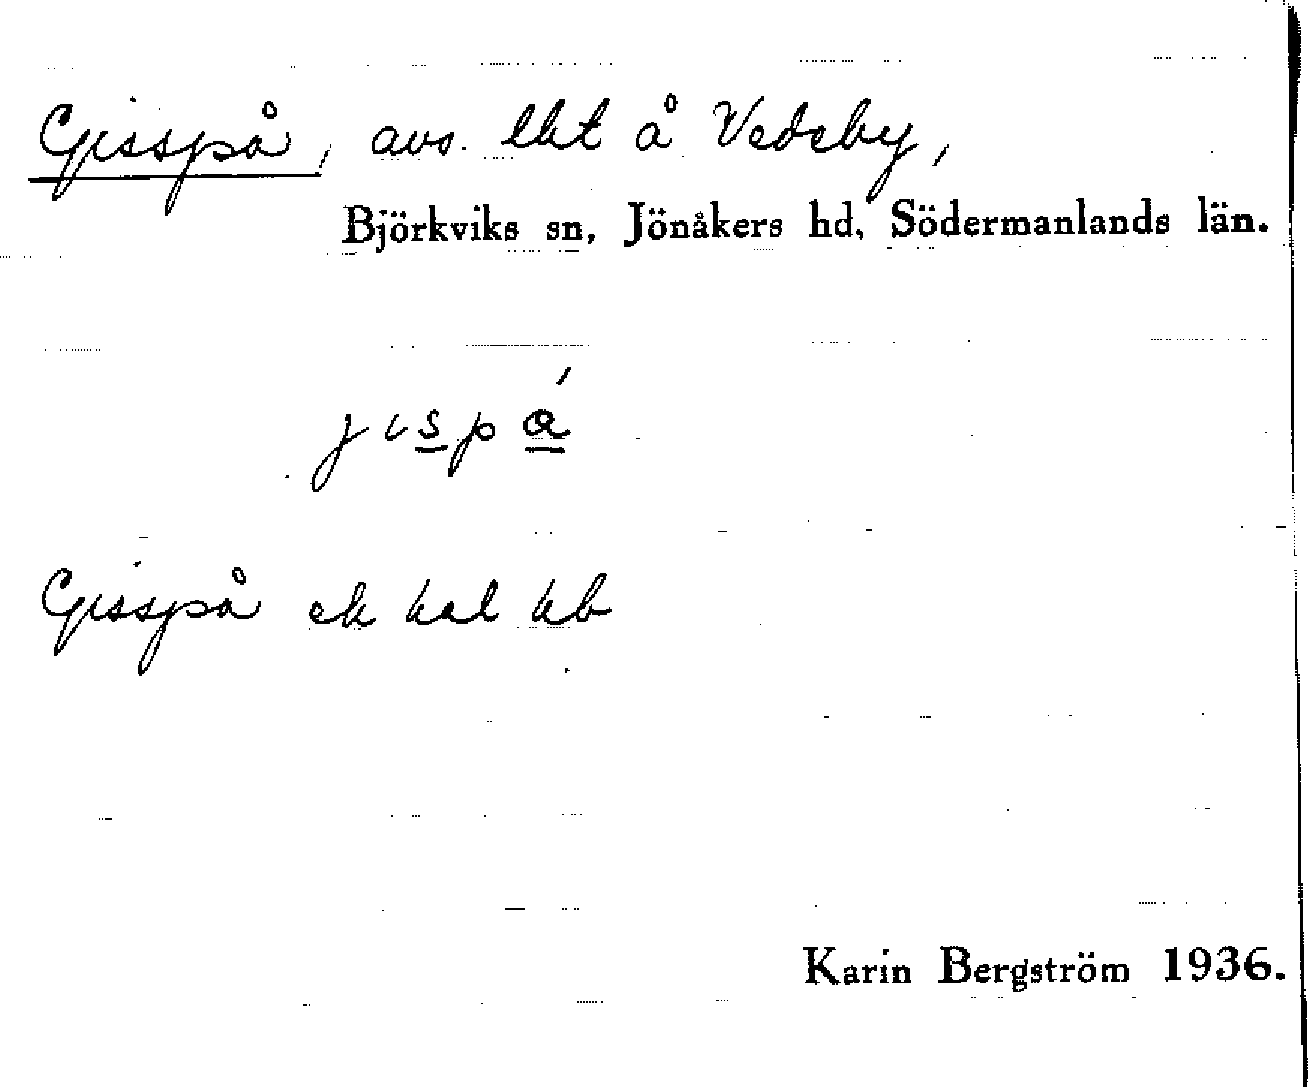 Gisspå, avs. lht å Vedeby,
Björkviks sn, Jönåkers hd, Södermanlands län.
jıspá
Gisspå ek kal kb
Karin Bergström 1936.